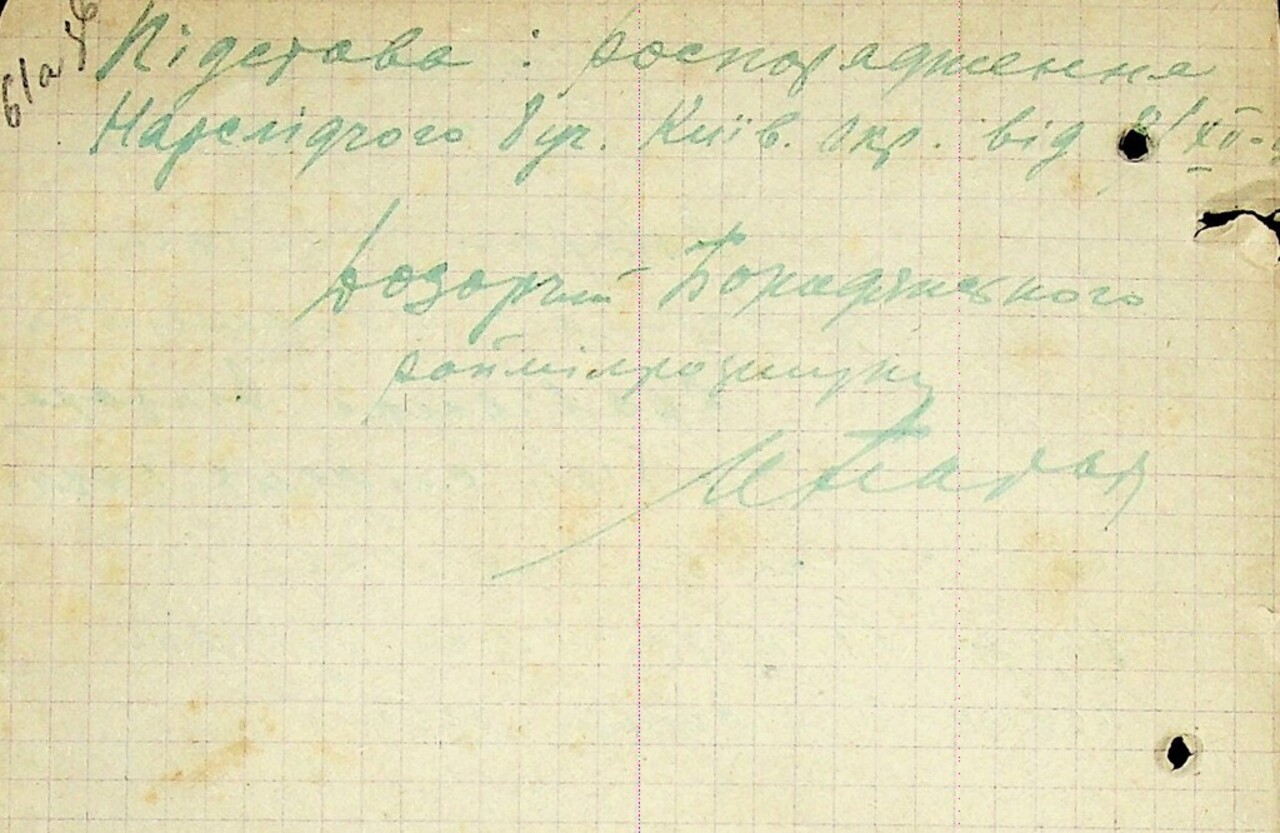 61а
Підстава : роспорядження
Нарслідчого 8 діл. Київ. Окр. від 8/XII-
Дозорчий Бородянського
райміліррозшуку